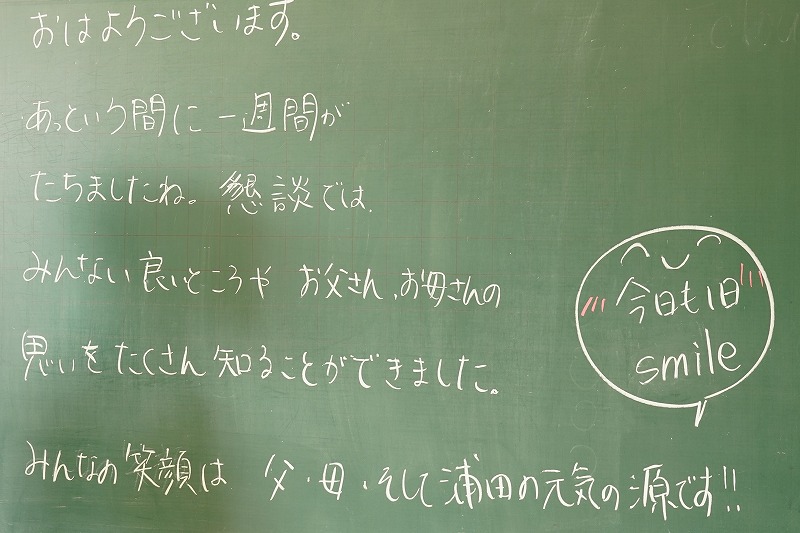 おはようございます。
あっという間に一週間が
たちましたね。懇談では、
みんない良いところや お父さん、お母さんの
思いをたくさん知ることができました。
みんなの笑顔は 父・母・そして浦田の元気の源です!!
今日も1日
smile